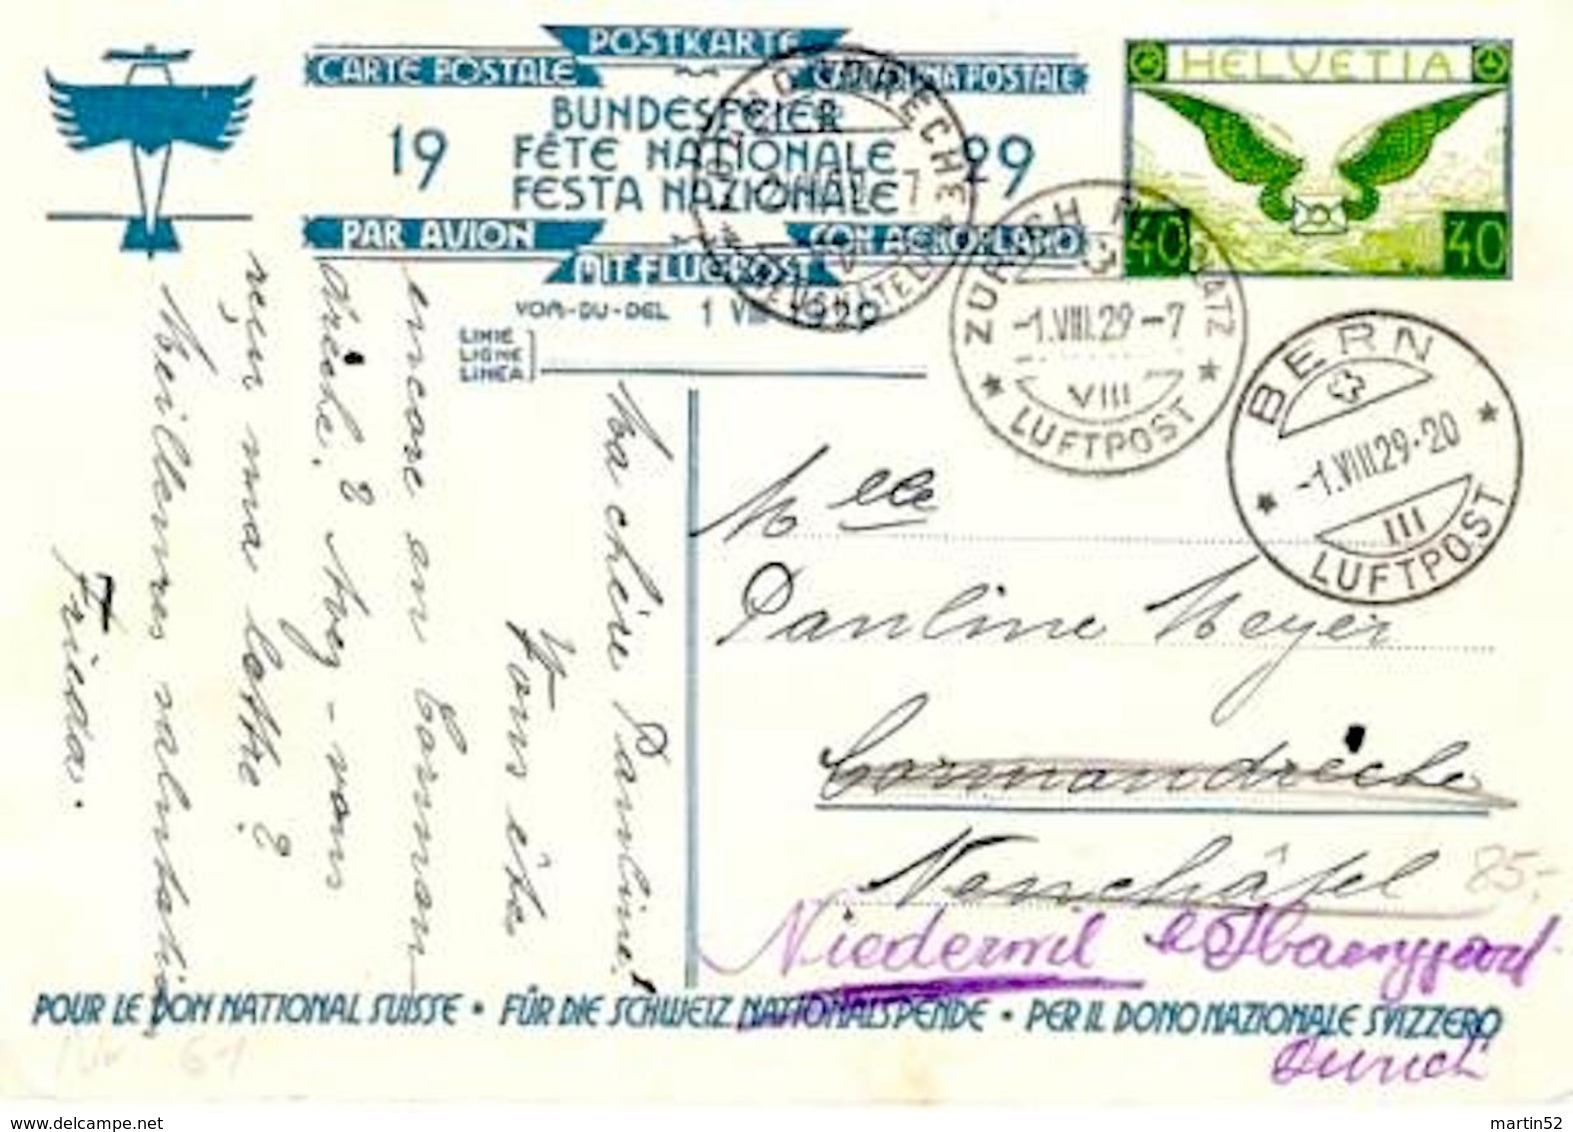 POSTKARTE
CARTE POSTALE CARTOLINA POSTALE
19 BUNDESFEIER 29
FÊTE NATIONALE
FESTA NAZIONALE
PAR AVION CON AEROPLANO
MIT FLUGPOST
VOM-DU-DEL 1 VIII 1929
LINIE
LIGNE
LINEA
HELVETIA
40 40
ZÜRICH FLUGPLATZ
-1.VIII.29-7
VIII
LUFTPOST
BERN
-1.VIII.29-20
III
LUFTPOST
(NEUCHÂTEL)
Ma chère Pauline!
Vous êtes
encore en Corman-
drèche? Avez-vous
reçu ma lettre?
Meilleures salutations
Frieda.
Mlle
Pauline Meyer
Cormandrèche
Neuchâtel
85.-
Niederwil
Zürich
POUR LE DON NATIONAL SUISSE • FÜR DIE SCHWEIZ. NATIONALSPENDE • PER IL DONO NAZIONALE SVIZZERO
martin52